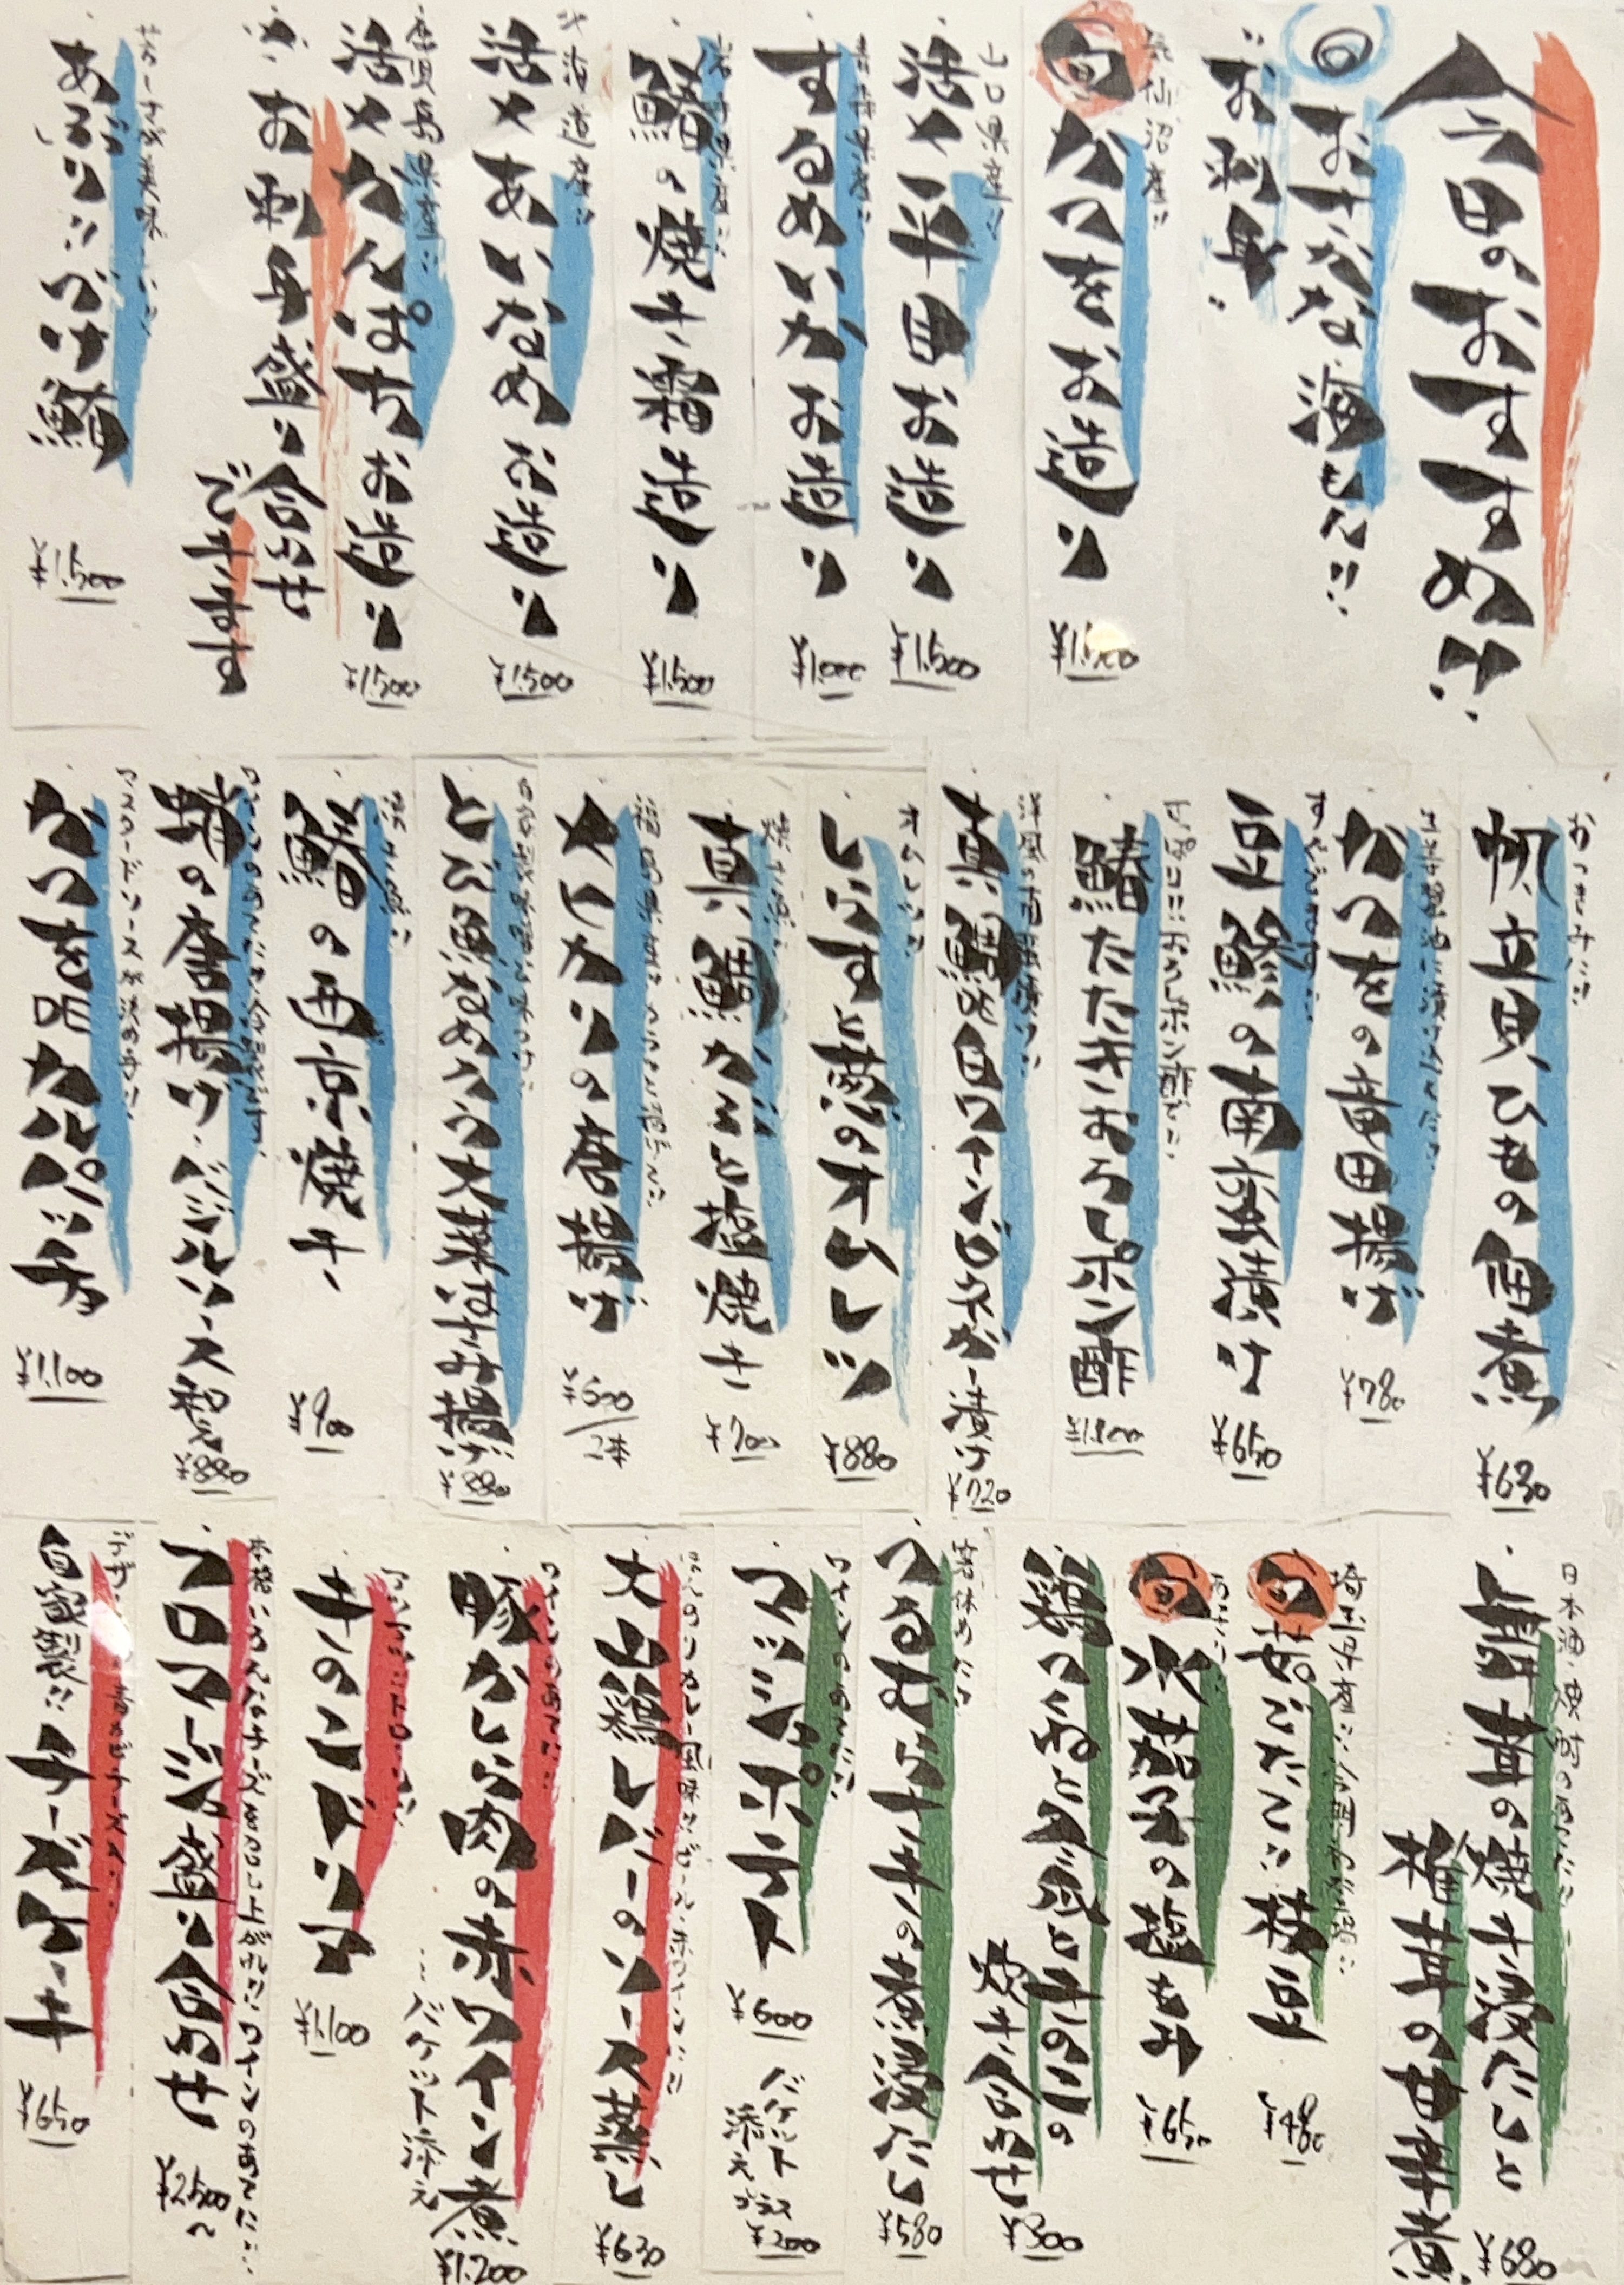 今日のおすすめ!!
旬 おさかな海もん!!
お刺身
気仙沼産!!
旬 かつをお造り
¥1,500
山口県産!!
活〆平目お造り
¥1,500
青森県産!!
するめいかお造り
¥1,000
岩手県産!!
鰆の焼き霜造り
¥1,500
北海道産!!
活〆あいなめお造り
¥1,500
鹿児島県産!!
活〆かんぱちお造り
¥1,500
お刺身盛り合わせ
できます
あぶり!!づけ鰆
¥1,500
おつまみに!!
帆立貝ひもの佃煮
¥630
かつをの竜田揚げ
¥780
豆鯵の南蛮漬け
¥650
さっぱりにおろしポン酢で!!
鰆たたきおろしポン酢
¥1,800
洋風の南蛮漬け!!
真鯛白ワインビネガー漬け
¥720
オムレツ!!
しらすと葱のオムレツ
¥880
焼き魚!!
真鯛かぶと塩焼き
¥700
福岡県産!!
めひかりの唐揚げ
¥600
2本
とび魚なめろう大葉はさみ揚げ
¥880
焼き魚!!
鰆の西京焼き
¥900
ワインのあてに!!
蛸の唐揚げバジルソース和え
¥880
マスタードソースが決め手!!
かつを昆カルパッチョ
¥1,100
日本酒・焼酎のあてに!!
舞茸の焼き浸だしと
椎茸の甘辛煮
¥680
埼玉県産!!
旬 茹でたて!!枝豆
¥480
旬 水茄子の塩もみ
¥650
鶏つくねと大根ときのこの
炊き合わせ
¥800
箸休めに!!
つるむらさきの煮浸だし
¥580
ワインのあてに!!
マッシュポテト
¥600
バケット
添え プラス
¥200
ほんのりカレー風味!!ビール・赤ワインに!!
大山鶏レバーのソース蒸し
¥630
ワインのあてに!!
豚かしら肉の赤ワイン煮
…バケット添え
¥1,200
きのこドリア
¥1,100
本格いろんなチーズを召し上がれ!!ワインのあてに!!
フロマージュ盛り合わせ
¥2,500〜
デザート
自家製!!チーズケーキ
¥650